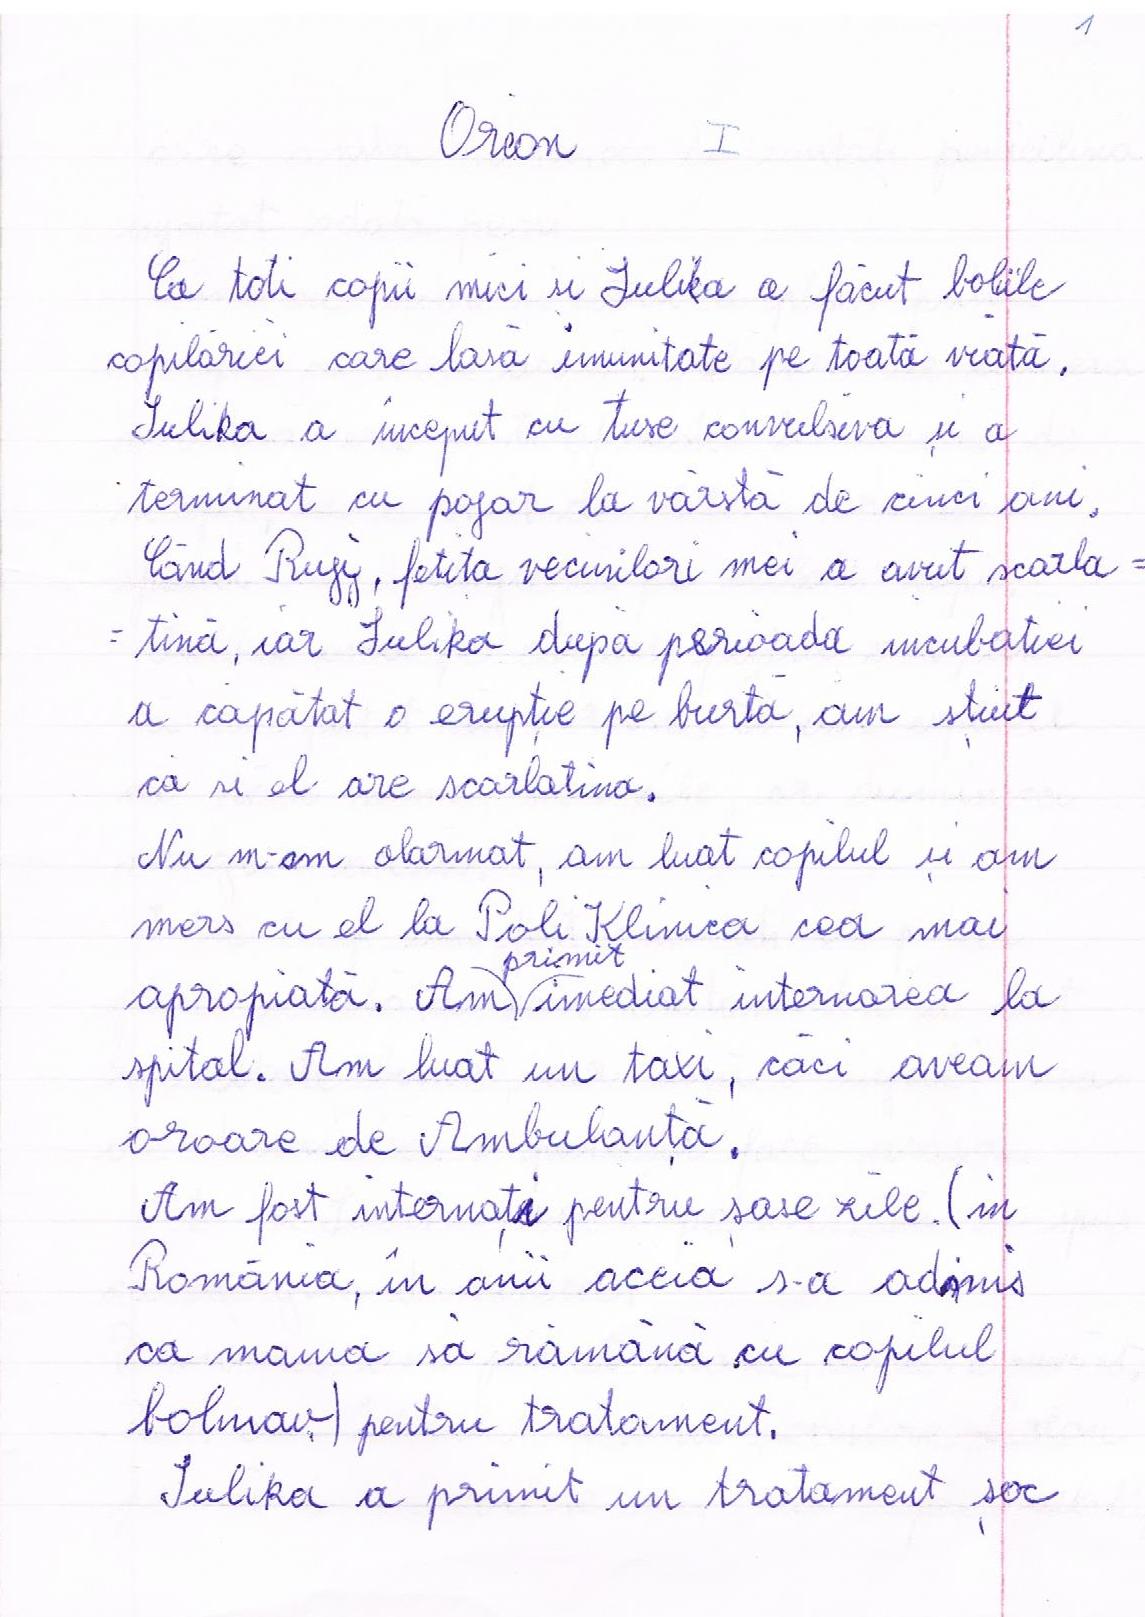 1
Orion I
Ca toti copii mici si Iulika a făcut bolile
copilăriei care lasă imunitate pe toată viată.
Iulika a început cu tuse convulsiva și a
terminat cu pojar la vârstă de cinci ani.
Când Rugy, fetita vecinilori mei a avut scarla=
=tină, iar Iulika după perioada incubatiei
a căpătat o erupție pe burtă, am știut
că si el are scarlatina.
Nu m-am alarmat, am luat copilul și am
mers cu el la Poli Klinica cea mai
primit
apropiată. Am imediat internarea la
spital. Am luat un taxi, căci aveam
oroare de Ambulanță.
Am fost internați pentru șase zile. (in
România, în anii aceia s-a admis
ca mama să rămână cu copilul
bolnav.) pentru tratament.
Iulika a primit un tratament șoc